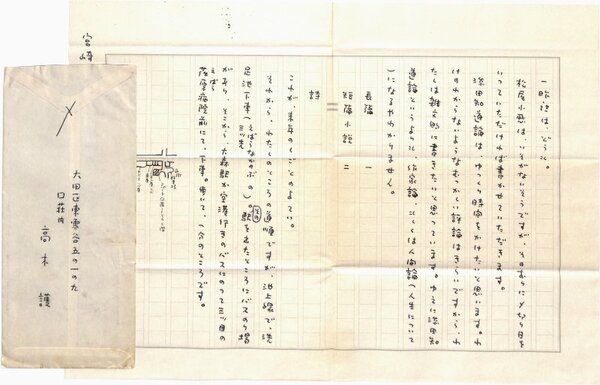 一昨日は、どうも。
松尾小愚は、いそがないそうですが、そのむりに〆切り日を
いっていただければ書かせていただきます。
添田知道論は、ゆっくり時間をかけたいと思います。わ
けのわからないようなむつかしい評論はきらいですから、わ
たしは雑文的に書きたいと思っています。ゆえに添田知
道論というよりも、作家論、もしくは人間論(人生について
)になるやもわかりません。
長篇 一
短篇小説 二
詩
これが、来年のしごとのよていです。
それから、わたしのところの道順ですが、池上線で、洗
足池下車
駅を出たところにバスのり場
があり、そこから、大森駅か空港行きのバスにのって三ツ目の
荏原病院前にて、下車。歩いて、一分のところです。
えばら
宮崎
大田区東雪谷五の一の九
口萩内
高木護